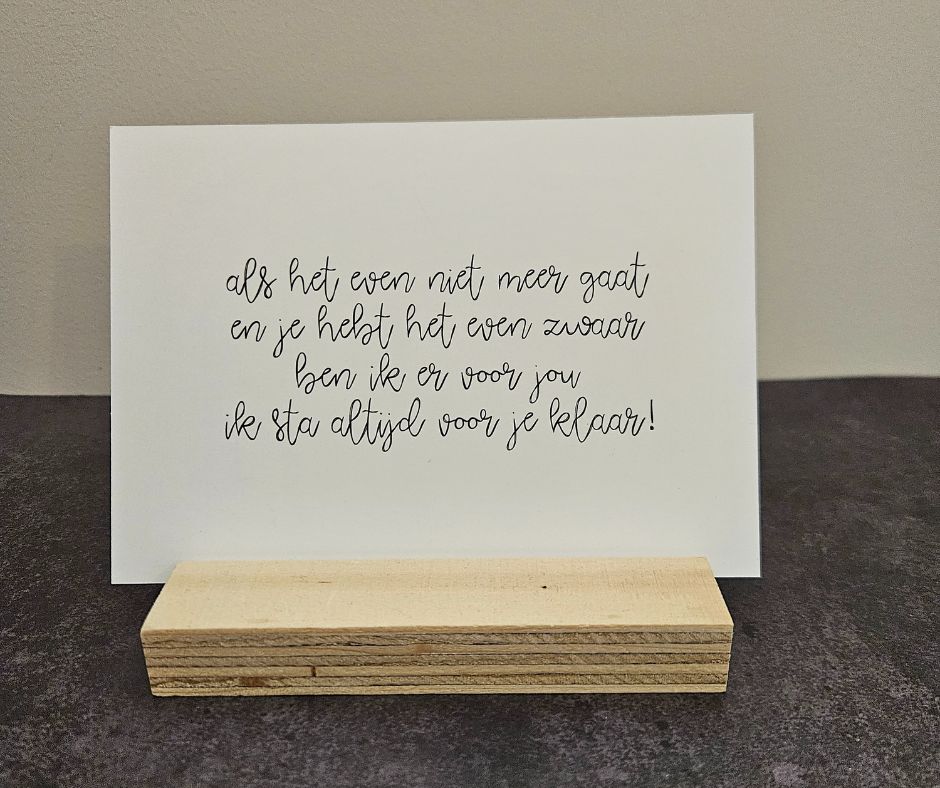 als het even niet meer gaat
en je hebt het even zwaar
ben ik er voor jou
ik sta altijd voor je klaar!